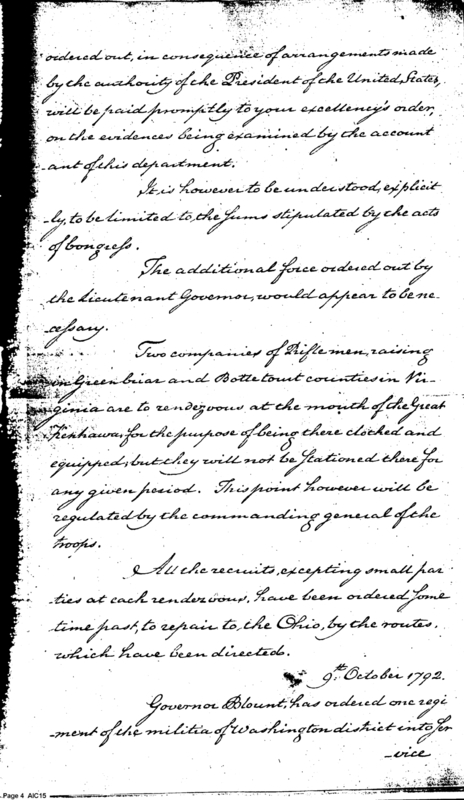 ordered out, in consequence of arrangements made
by the authority of the President of the United States,
will be paid promptly to your excellency's order,
on the evidences being examined by the account
ant of this department.
It is however to be understood, explicit
-ly, to be limited to the sums stipulated by the acts
of Congress.
The additional force ordered out by
the Lieutenant Governor, would appear to be ne-
-cessary.
Two companies of Riflemen, raising
in Greenbriar and Bottetourt counties in Vir-
-ginia are to rendezvous at the mouth of the Great
Kenhawa, for the purpose of being there clothed and
equipped, but they will not be stationed there for
any given period. This point however will be
regulated by the commanding general of the
troops.
All the recruits, excepting small par
ties at each rendezvous, have been ordered some
time past, to repair to the Ohio, by the routes,
which have been directed.
9th October 1792.
Governor Blount, has ordered one regi
-ment of the militia of Washington district into ser
-vice
Page 4 AIC15